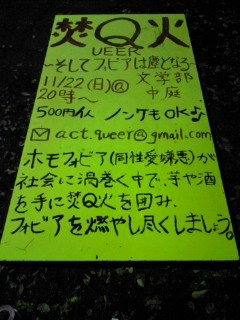 焚Q火
UEER
～そしてフォビアは塵となる～
11/22(日)@文学部
20時～ 中庭
500円くらい ノンケもOK♪
✉act.queer@gmail.com
ホモフォビア(同性愛嫌悪)が
社会に渦巻く中で、芋や酒
を手に焚Q火を囲み、
フォビアを燃やし尽くしましょう。